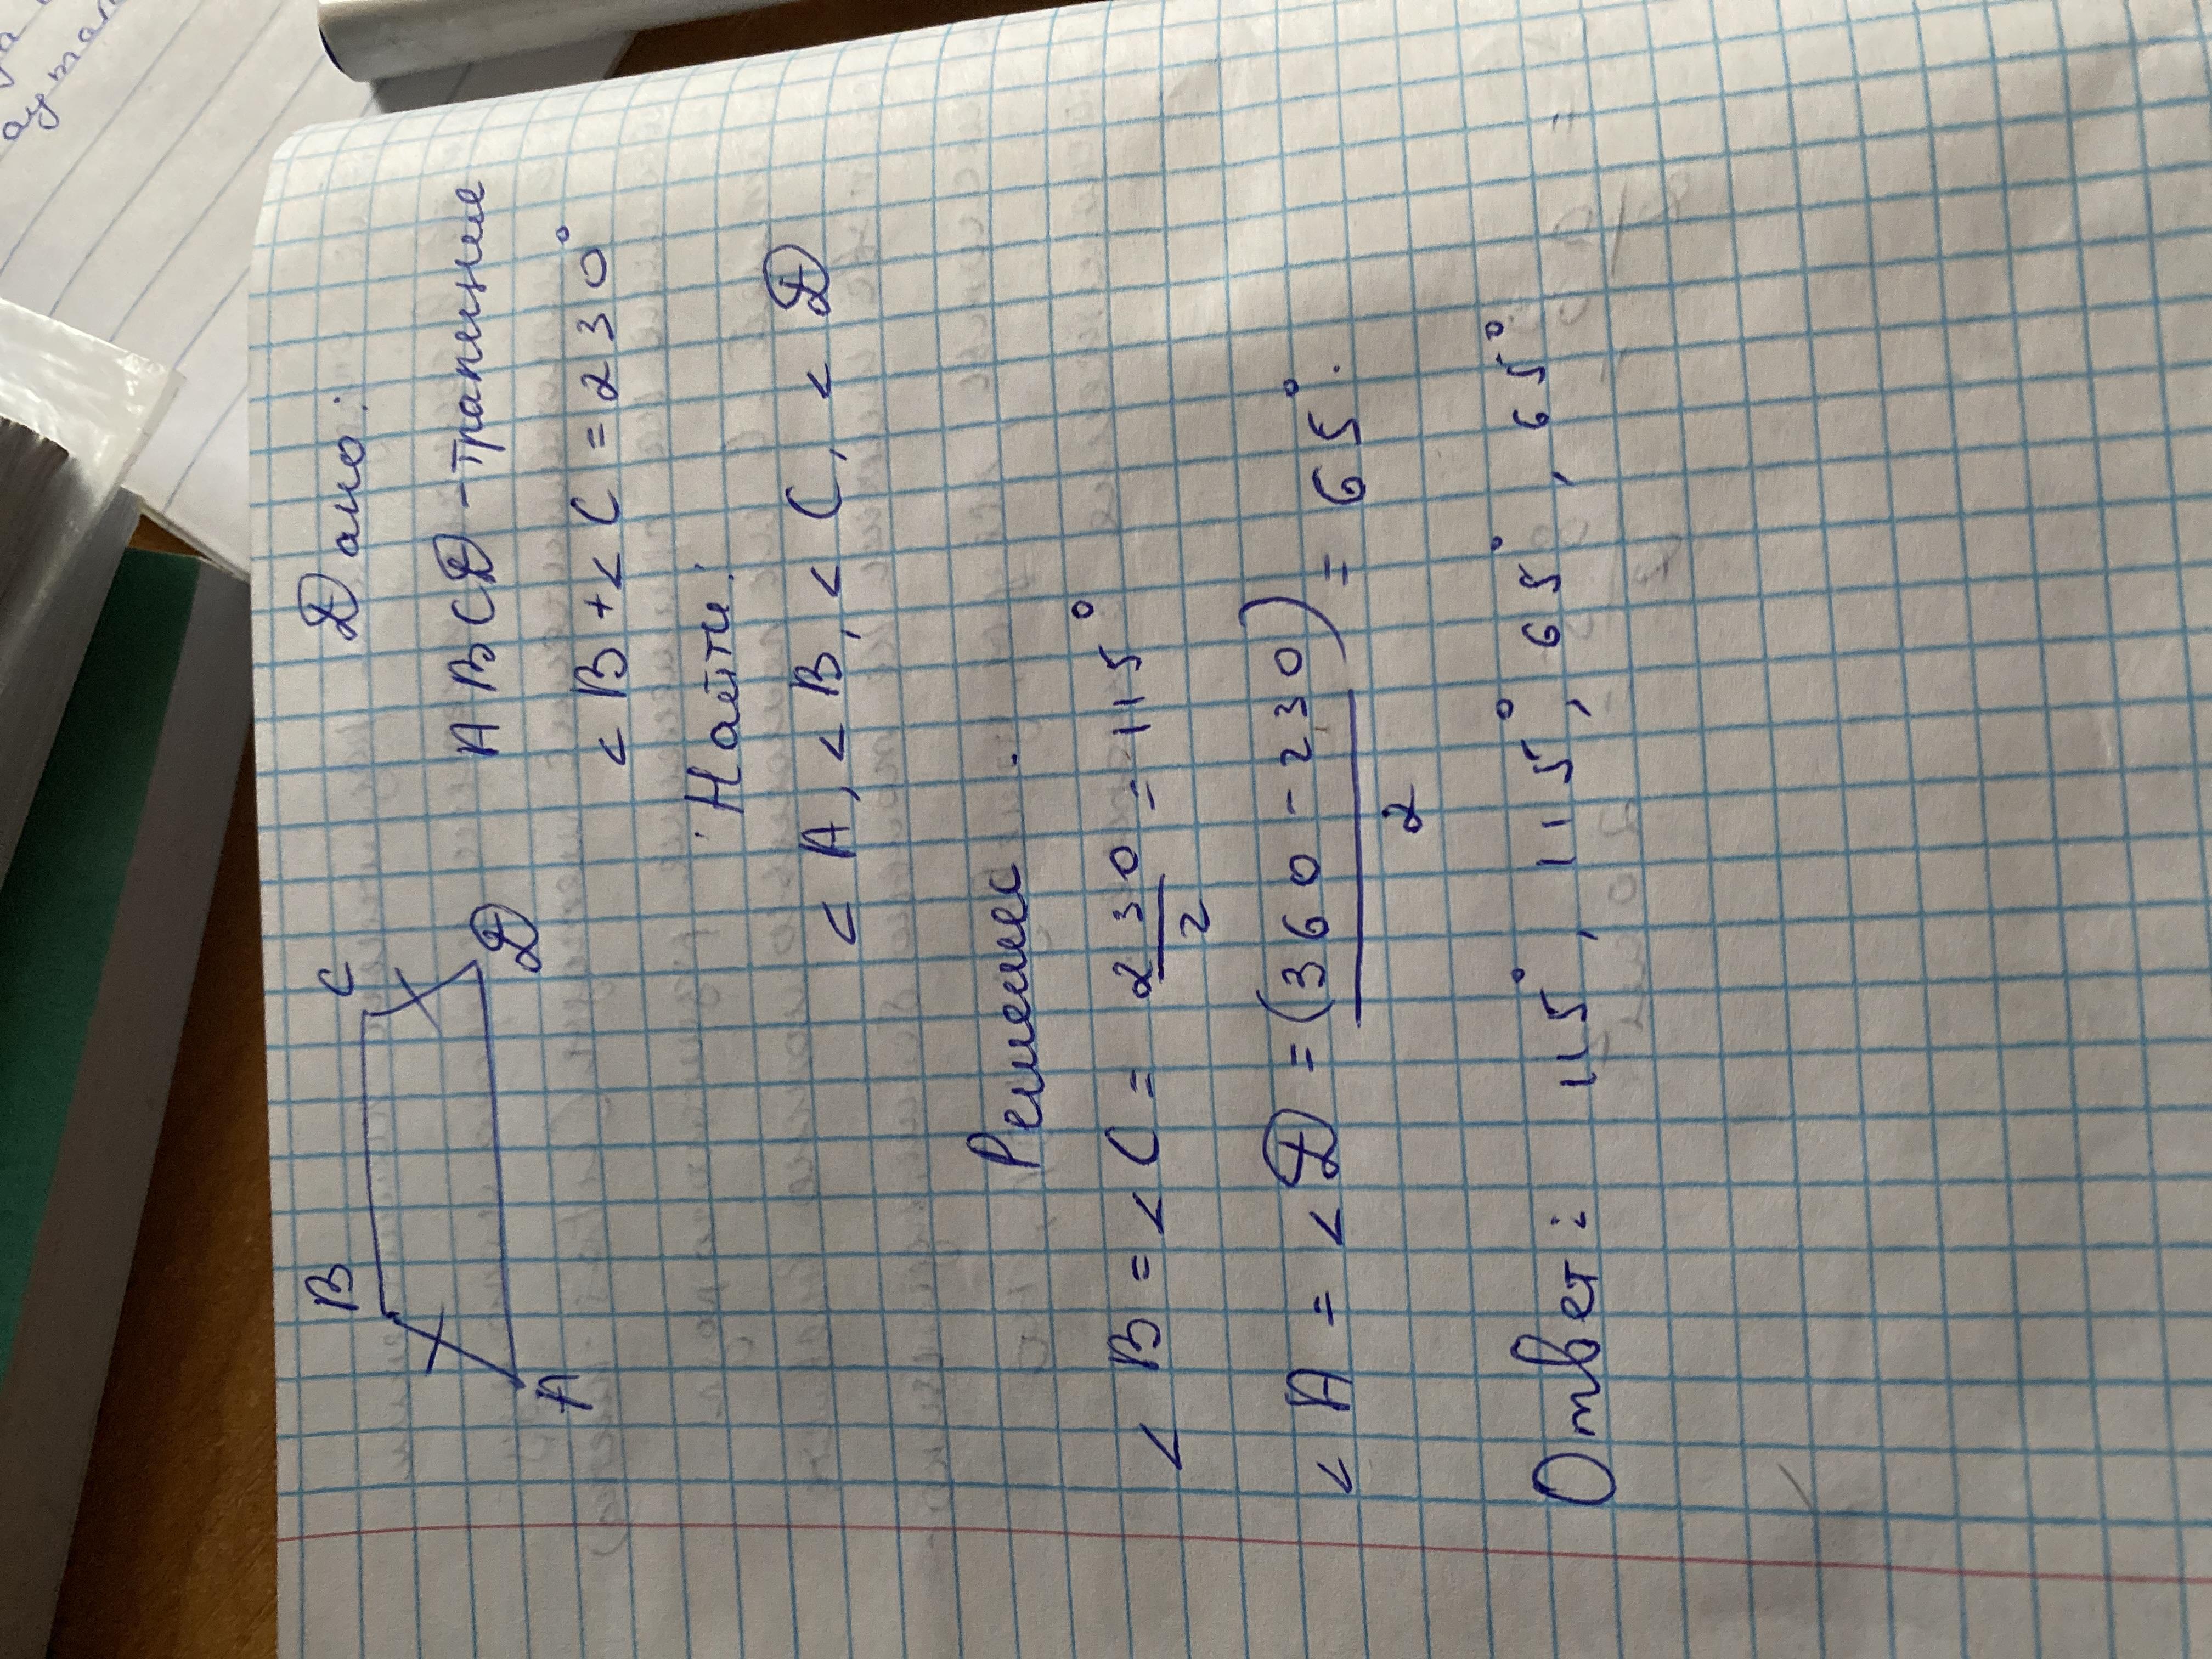 B C
A Д
Дано:
АВСД - трапеция
< В + < С = 230°
Найти:
< А, < В, < С, < Д
Решение.
< В = < С = 230/2 = 115°
< А = < Д = (360 - 230)/2 = 65°.
Ответ: 115°, 115°, 65°, 65°